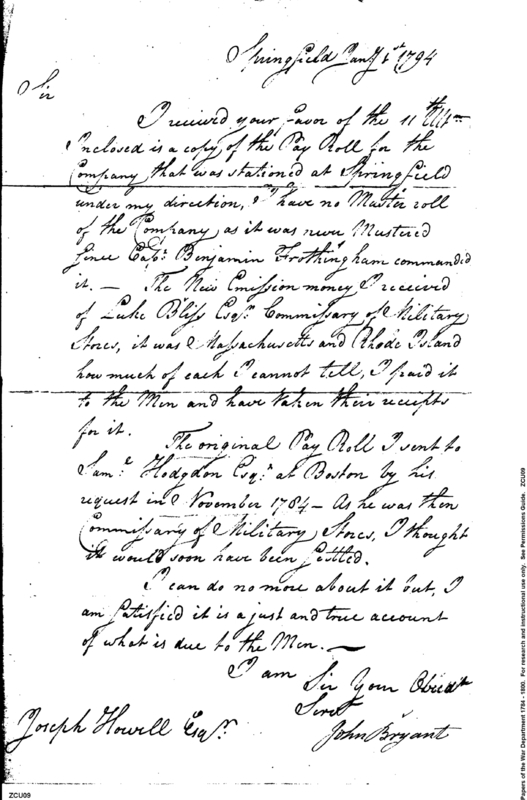 Springfield Jany 1st 1794
Sir
I receivd your favor of the 11th Ultmo
Inclosed is a copy of the Pay Roll for the
Company that was stationed at Springfield
under my direction, I have no Master roll
of the Company as it was never Mustered
Since Capt. Benjamin Frothingham commanded
it. — The New Emission money I received
of Luke Bliss Esqr. Commissary of Military
Stores, it was Massachusetts and Rhode Island
how much of each I cannot tell, I paid it
to the Men and have taken their receipts
for it. The original Pay Roll I sent to
Saml. Hodgdon Esqr. at Boston by his
request in November 1784 — As he was then
Commissary of Military Stores, I thought
it would soon have been settled.
I can do no more about it but, I
am satisfied it is a just and true account
of what is due to the Men. —
I am
Sir Your Obedt
Servt
John Bryant
Joseph Howell Esqr.
ZCU09
Papers of the War Department 1784 - 1800. For research and instructional use only. See Permissions Guide. ZCU09